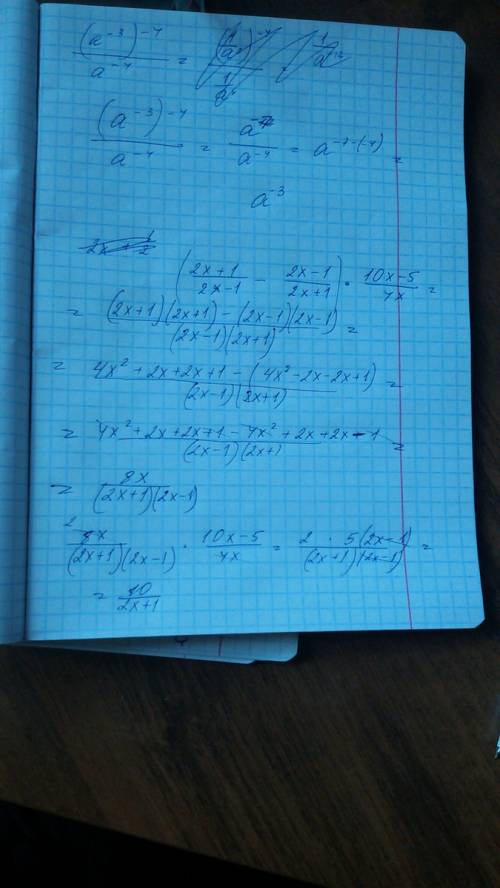 (a⁻³)⁻⁴ / a⁻⁴ =
(a⁻³)⁻⁴ / a⁻⁴ = a⁻⁷ / a⁻⁴ = a⁻⁷⁻⁽⁻⁴⁾ =
a⁻³
((2x+1)/(2x-1) - (2x-1)/(2x+1)) · (10x-5)/(4x) =
= ((2x+1)(2x+1) - (2x-1)(2x-1)) / ((2x-1)(2x+1)) =
= (4x² + 2x + 2x + 1 - (4x² - 2x - 2x + 1)) / ((2x-1)(2x+1)) =
= (4x² + 2x + 2x + 1 - 4x² + 2x + 2x - 1) / ((2x-1)(2x+1) =
= 8x / ((2x+1)(2x-1))
2 8x / ((2x+1)(2x-1)) · (10x-5)/(4x) = (2 · 5(2x-1)) / ((2x+1)(2x-1)) =
= 10 / (2x+1)